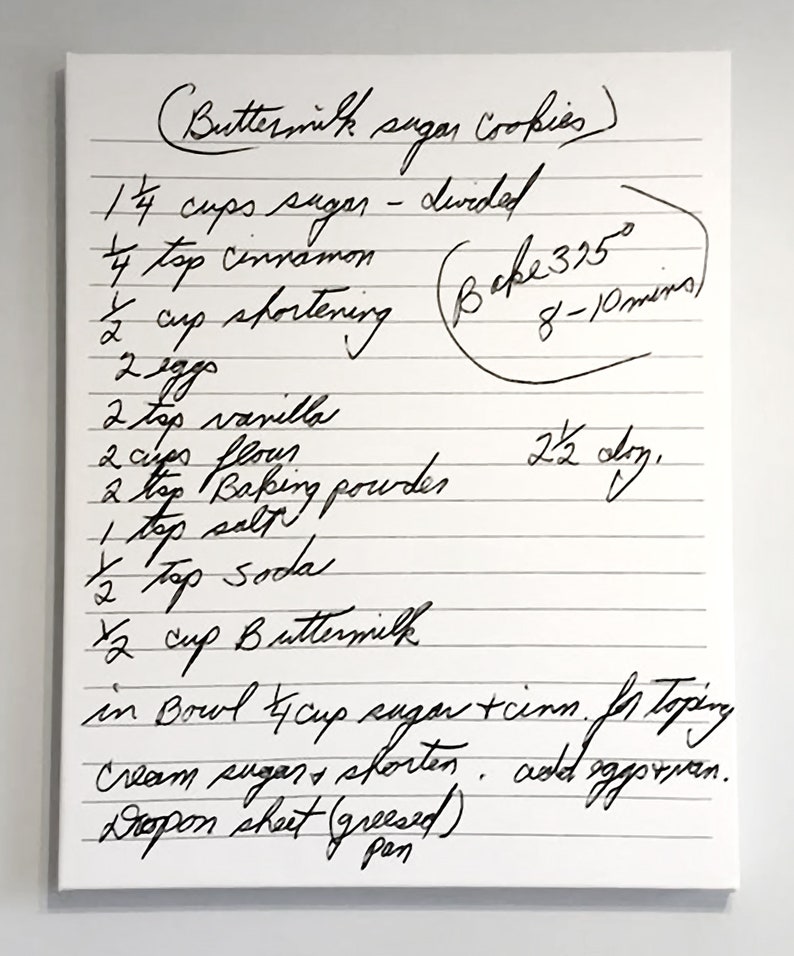 (Buttermilk sugar Cookies)
1 1/4 cups sugar - divided
1/4 tsp cinnamon
Bake 325°
8-10 mins
1/2 cup shortening
2 eggs
2 tsp vanilla
2 cups flour
2 1/2 doz.
2 tsp Baking powder
1 tsp salt
1/2 tsp soda
1/2 cup Buttermilk
in Bowl 1/4 cup sugar + cinn. for Toping
Cream sugar + shorten. add eggs + van.
Drop on sheet (greesed)
pan